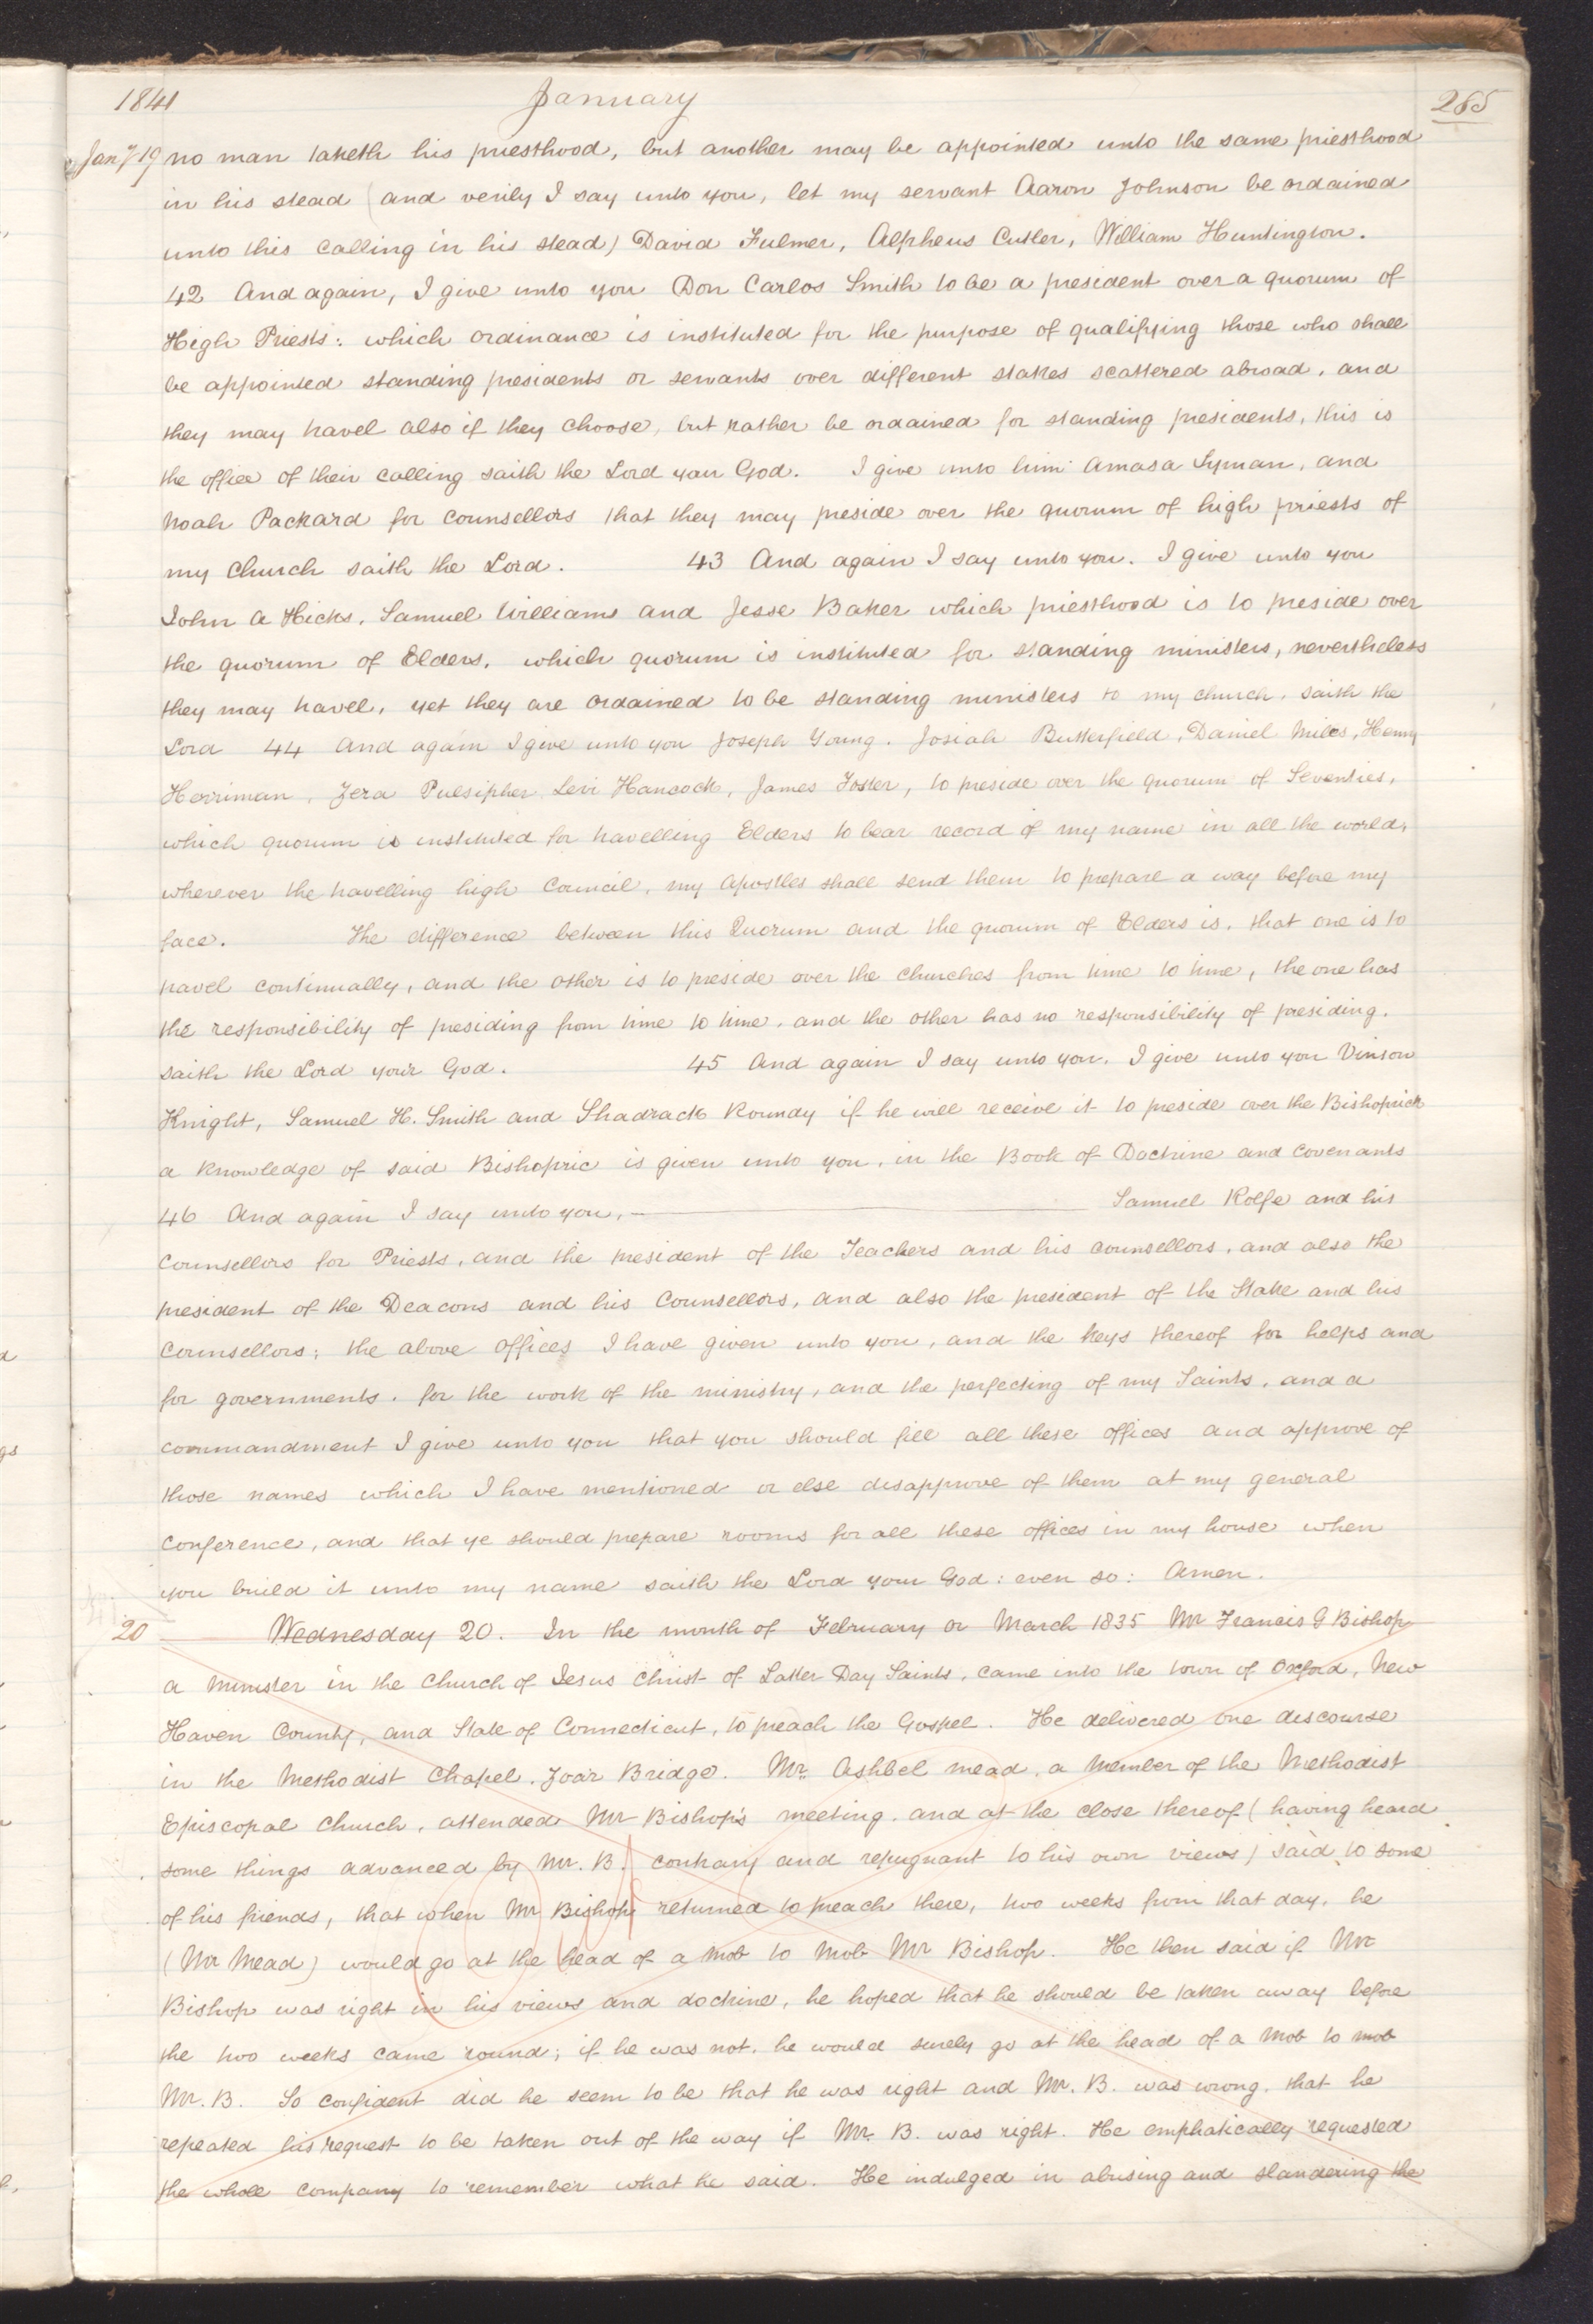 1841 January 265
Jany 19 no man taketh his priesthood, but another may be appointed unto the same priesthood
in his stead (and verily I say unto you, let my servant Aaron Johnson be ordained
unto this calling in his stead) David Fulmer, Alpheus Cutler, William Huntington.
42 And again, I give unto you Don Carlos Smith to be a president over a quorum of
High Priests: which ordinance is instituted for the purpose of qualifying those who shall
be appointed standing presidents or servants over different stakes scattered abroad, and
they may travel also if they choose, but rather be ordained for standing presidents, this is
the office of their calling saith the Lord your God. I give unto him Amasa Lyman, and
Noah Packard for counsellors that they may preside over the quorum of high priests of
my church saith the Lord. 43 And again I say unto you. I give unto you
John A Hicks, Samuel Williams and Jesse Baker which priesthood is to preside over
the quorum of Elders, which quorum is instituted for standing ministers, nevertheless
they may travel, yet they are ordained to be standing ministers to my church, saith the
Lord 44 And again I give unto you Joseph Young. Josiah Butterfield, Daniel Miles, Henry
Herriman, Zera Pulsipher Levi Hancock, James Foster, to preside over the quorum of Seventies,
which quorum is instituted for travelling Elders to bear record of my name in all the world,
wherever the travelling high Council, my Apostles shall send them to prepare a way before my
face. The difference between this Quorum and the quorum of Elders is, that one is to
travel continually, and the other is to preside over the churches from time to time, the one has
the responsibility of presiding from time to time, and the other has no responsibility of presiding.
saith the Lord your God. 45 And again I say unto you. I give unto you Vinson
Knight, Samuel H. Smith and Shadrack Roundy if he will receive it to preside over the Bishoprick
a knowledge of said Bishopric is given unto you, in the Book of Doctrine and Covenants
46 And again I say unto you, — Samuel Rolfe and his
Counsellors for Priests, and the president of the Teachers and his counsellors, and also the
president of the Deacons and his Counsellors, and also the president of the Stake and his
Counsellors; the above offices I have given unto you, and the keys thereof for helps and
for governments, for the work of the ministry, and the perfecting of my Saints, and a
commandment I give unto you that you should fill all these offices and approve of
those names which I have mentioned or else disapprove of them at my general
conference, and that ye should prepare rooms for all these offices in my house when
you build it unto my name saith the Lord your God: even so: Amen.
20 Wednesday 20. In the month of February or March 1835 Mr Francis G Bishop
a Minister in the Church of Jesus Christ of Latter Day Saints, came into the town of Oxford, New
Haven County, and State of Connecticut, to preach the Gospel. He delivered one discourse
in the Methodist Chapel, Zoar Bridge. Mr. Ashbel Mead, a Member of the Methodist
Episcopal Church, attended Mr Bishop's meeting, and at the close thereof (having heard
some things advanced by Mr. B. contrary and repugnant to his own views) said to some
of his friends, that when Mr Bishop returned to preach there, two weeks from that day, he
(Mr Mead) would go at the head of a Mob to Mob Mr Bishop. He then said if Mr
Bishop was right in his views and doctrine, he hoped that he should be taken away before
the two weeks came round; if he was not, he would surely go at the head of a Mob to mob
Mr. B. So confident did he seem to be that he was right and Mr. B. was wrong, that he
repeated his request to be taken out of the way if Mr. B. was right. He emphatically requested
the whole company to remember what he said. He indulged in abusing and slandering the